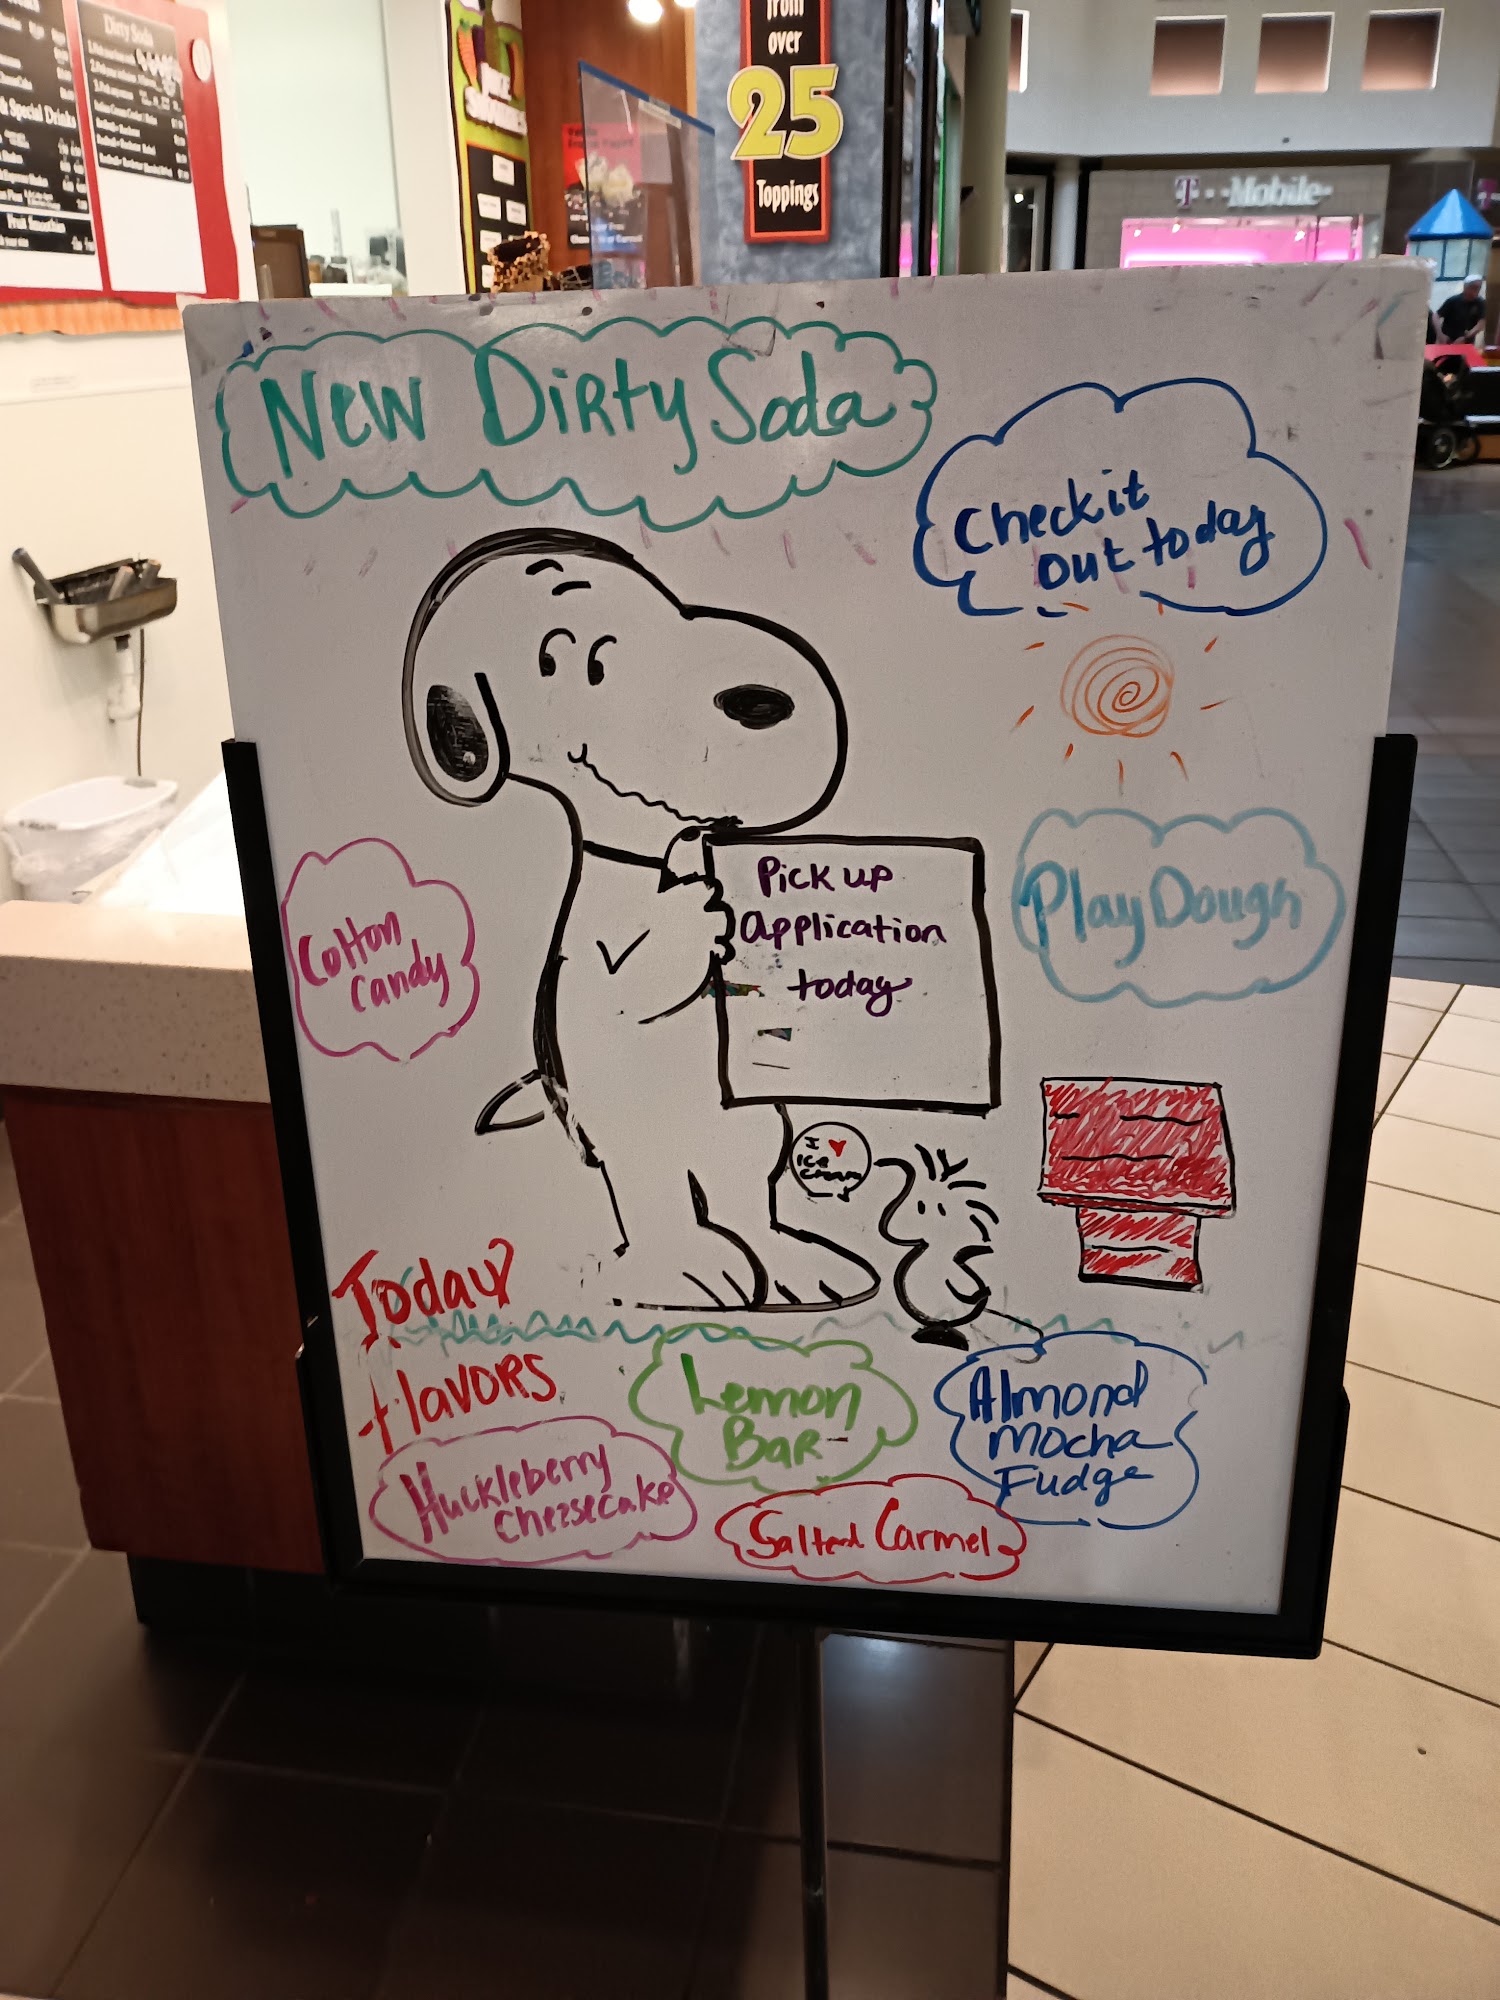 Dirty Soda
& Special Drinks
Fruit Smoothies
from
over
25
Toppings
T Mobile
New Dirty Soda
Check it
out today
Pick up
application
today
Cotton
Candy
Play Dough
I ♥
ice
cream
Today
flavors
Lemon
Bar
Almond
Mocha
Fudge
Huckleberry
Cheesecake
Salted Carmel